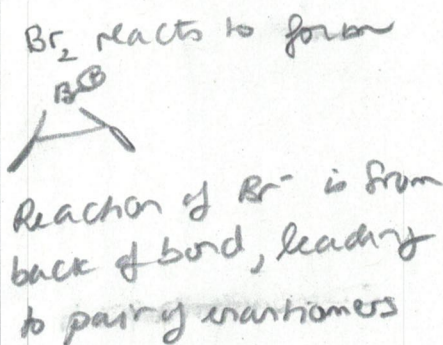 Br₂ reacts to form
Br⊕
Reaction of Br⁻ is from
back of bond, leading
to pair of enantiomers